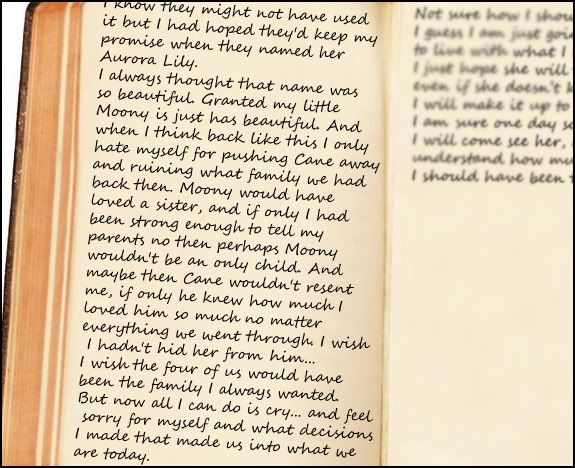 I know they might not have used
it but I had hoped they'd keep my
promise when they named her
Aurora Lily.
I always thought that name was
so beautiful. Granted my little
Moony is just has beautiful. And
when I think back like this I only
hate myself for pushing Cane away
and ruining what family we had
back then. Moony would have
loved a sister, and if only I had
been strong enough to tell my
parents no then perhaps Moony
wouldn't be an only child. And
maybe then Cane wouldn't resent
me, if only he knew how much I
loved him so much no matter
everything we went through. I wish
I hadn't hid her from him...
I wish the four of us would have
been the family I always wanted.
But now all I can do is cry... and feel
sorry for myself and what decisions
I made that made us into what we
are today.
Not sure how I
I guess I am just
to live with what I
I just hope she will
even if she doesn't
I will make it up to
I am sure one day
I will come see her,
understand how
I should have been